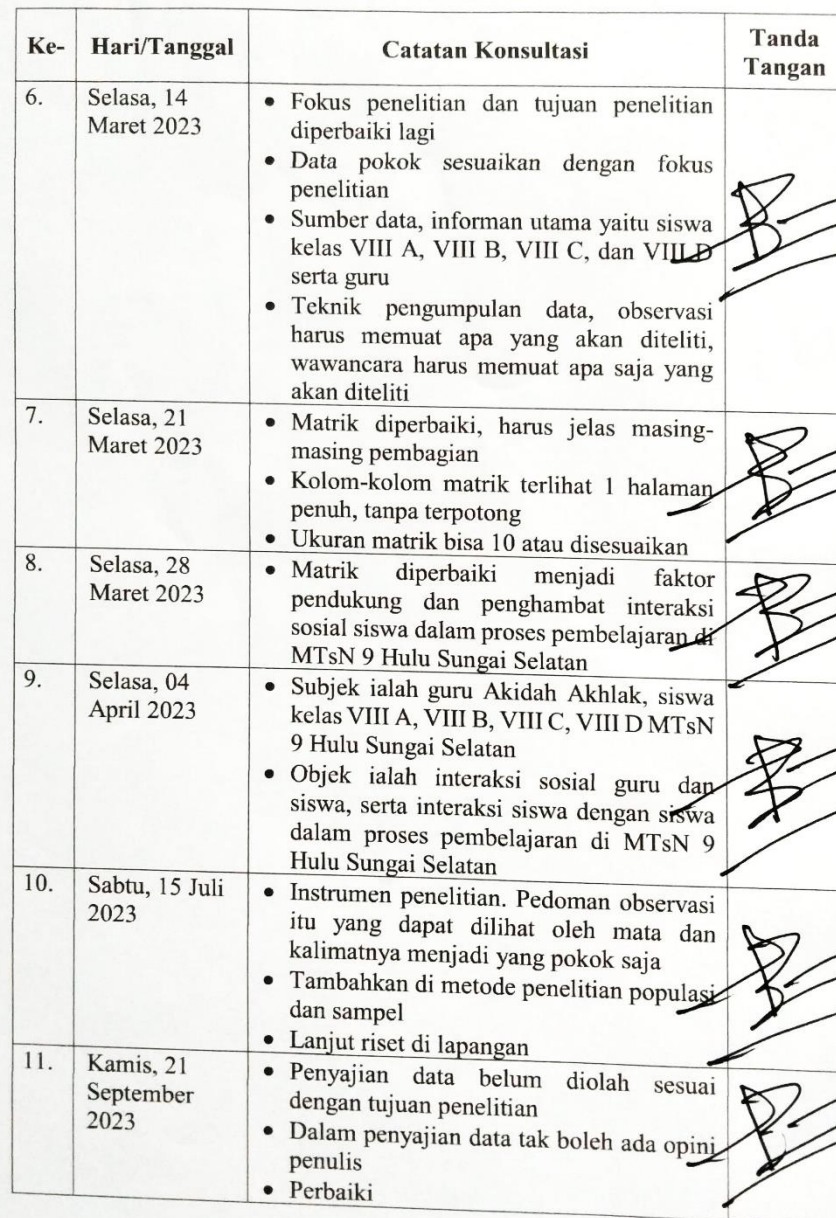 Ke- Hari/Tanggal Catatan Konsultasi Tanda Tangan
6. Selasa, 14 Maret 2023
• Fokus penelitian dan tujuan penelitian
diperbaiki lagi
• Data pokok sesuaikan dengan fokus
penelitian
• Sumber data, informan utama yaitu siswa
kelas VIII A, VIII B, VIII C, dan VIII D
serta guru
• Teknik pengumpulan data, observasi
harus memuat apa yang akan diteliti,
wawancara harus memuat apa saja yang
akan diteliti
7. Selasa, 21 Maret 2023
• Matrik diperbaiki, harus jelas masing-
masing pembagian
• Kolom-kolom matrik terlihat 1 halaman
penuh, tanpa terpotong
• Ukuran matrik bisa 10 atau disesuaikan
8. Selasa, 28 Maret 2023
• Matrik diperbaiki menjadi faktor
pendukung dan penghambat interaksi
sosial siswa dalam proses pembelajaran di
MTsN 9 Hulu Sungai Selatan
9. Selasa, 04 April 2023
• Subjek ialah guru Akidah Akhlak, siswa
kelas VIII A, VIII B, VIII C, VIII D MTsN
9 Hulu Sungai Selatan
• Objek ialah interaksi sosial guru dan
siswa, serta interaksi siswa dengan siswa
dalam proses pembelajaran di MTsN 9
Hulu Sungai Selatan
10. Sabtu, 15 Juli 2023
• Instrumen penelitian. Pedoman observasi
itu yang dapat dilihat oleh mata dan
kalimatnya menjadi yang pokok saja
• Tambahkan di metode penelitian populasi
dan sampel
• Lanjut riset di lapangan
11. Kamis, 21 September 2023
• Penyajian data belum diolah sesuai
dengan tujuan penelitian
• Dalam penyajian data tak boleh ada opini
penulis
• Perbaiki